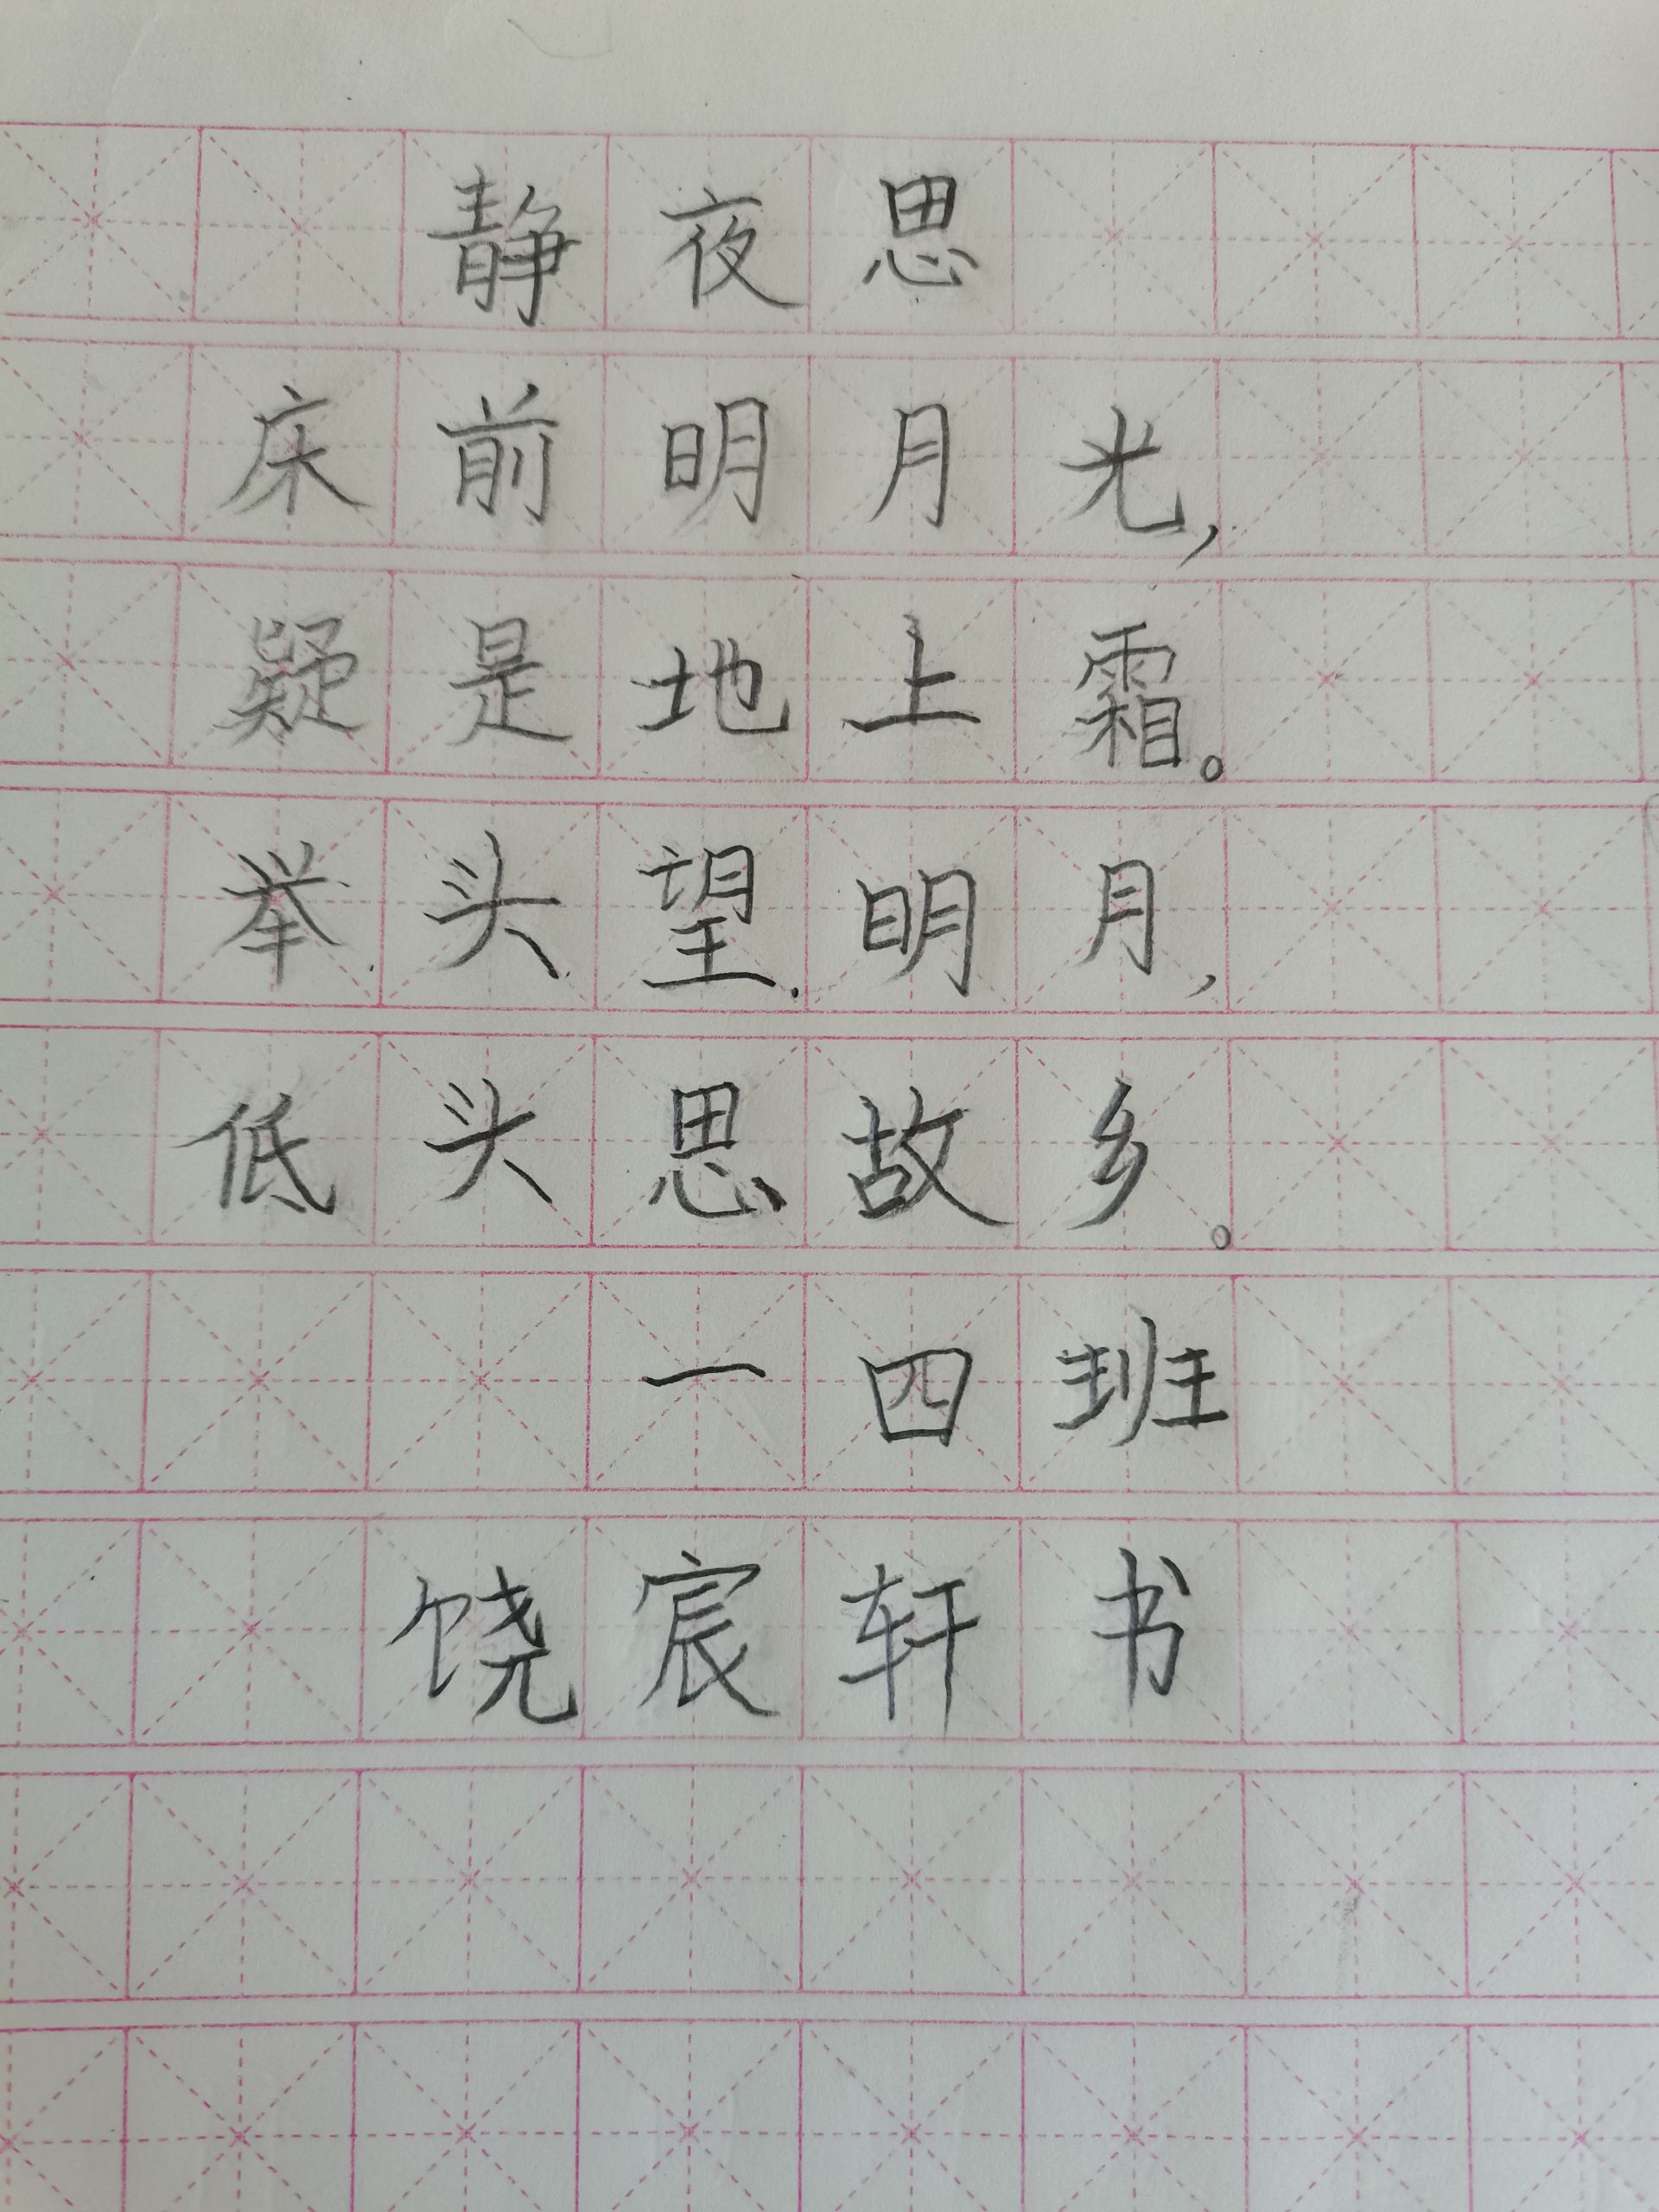 静夜思
床前明月光，
疑是地上霜。
举头望明月，
低头思故乡。
一四班
饶宸轩书